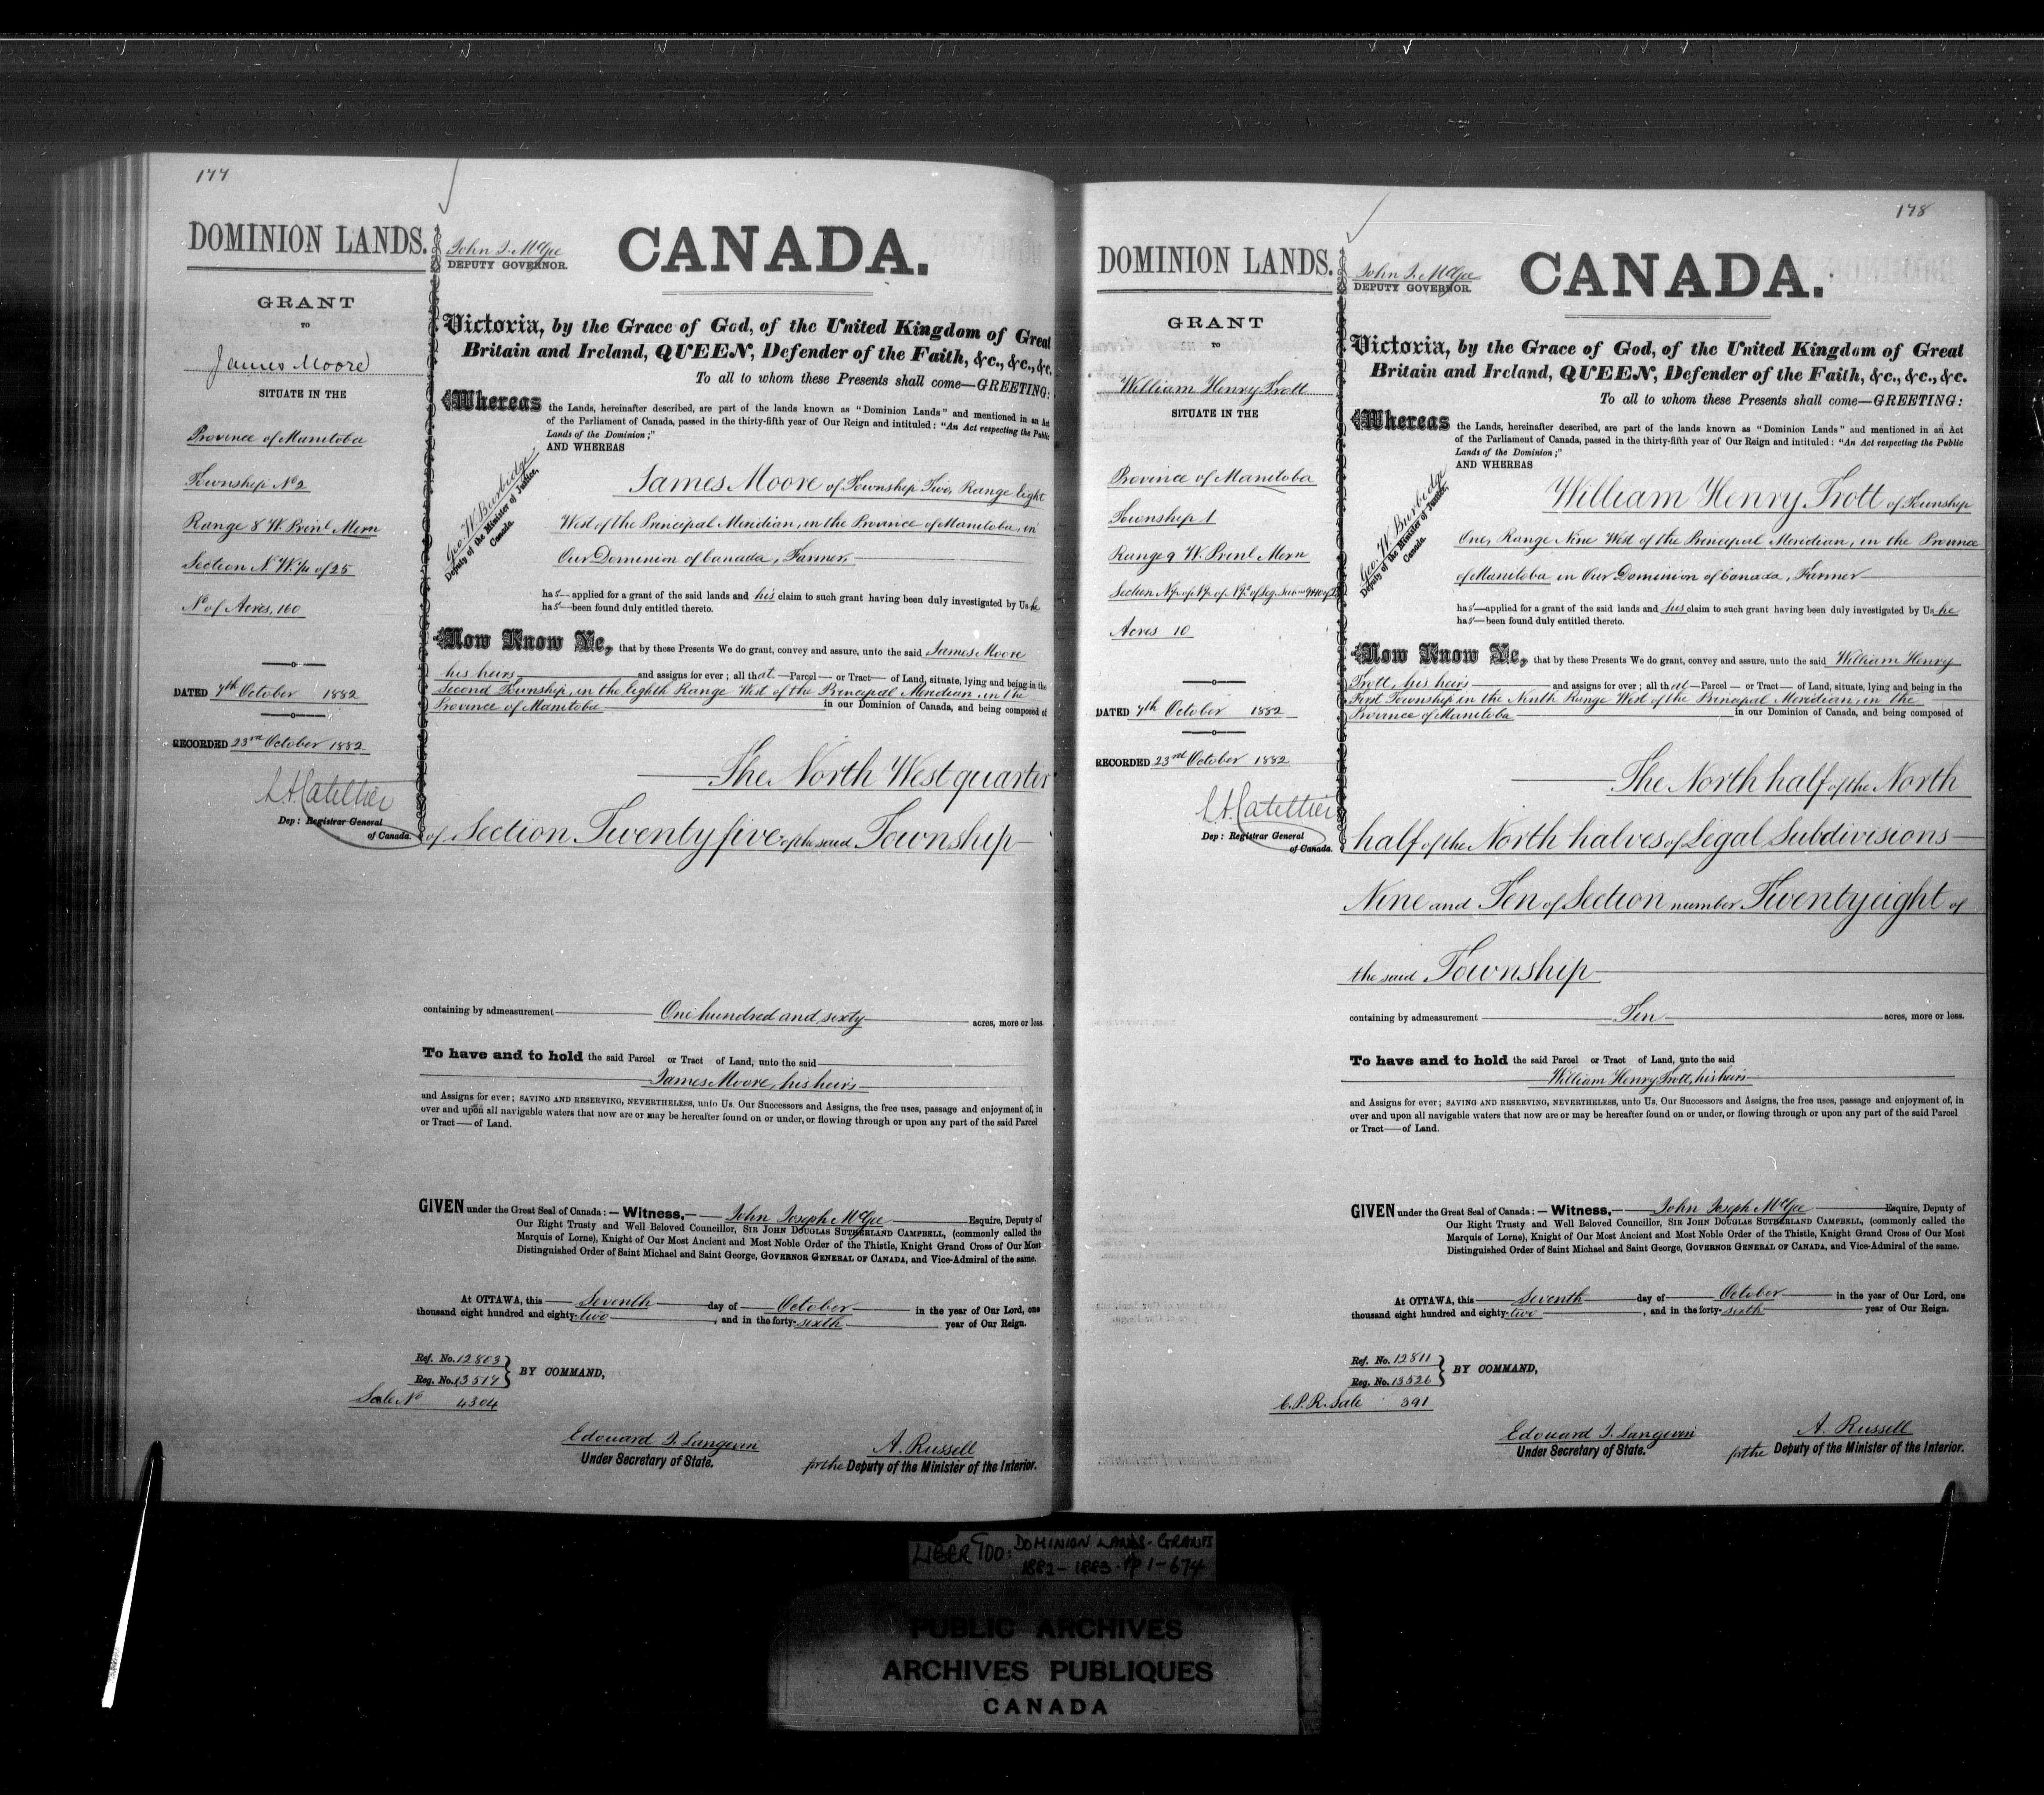 177
DOMINION LANDS.
GRANT
TO
James Moore
SITUATE IN THE
Province of Manitoba
Township No 2
Range 8 W. Prinl Mern
Section N. W. 1/4 of 25
No of Acres, 160
DATED 7th October 1882
RECORDED 23rd October 1882
L.A. Catellier
Dep: Registrar General
of Canada.
John J. McGee
DEPUTY GOVERNOR.
CANADA.
Victoria, by the Grace of God, of the United Kingdom of Great
Britain and Ireland, QUEEN, Defender of the Faith, &c., &c., &c.
To all to whom these Presents shall come—GREETING:
Whereas the Lands, hereinafter described, are part of the lands known as "Dominion Lands" and mentioned in an Act
of the Parliament of Canada, passed in the thirty-fifth year of Our Reign and intituled: "An Act respecting the Public
Lands of the Dominion;"
AND WHEREAS
Geo. W. Burbidge
Deputy of the Minister of Justice,
Canada.
James Moore of Township Two, Range Eight
West of the Principal Meridian, in the Province of Manitoba, in
Our Dominion of Canada, Farmer,
has applied for a grant of the said lands and his claim to such grant having been duly investigated by Us he
has been found duly entitled thereto.
Now Know Ye, that by these Presents We do grant, convey and assure, unto the said James Moore
his heirs, and assigns for ever; all that Parcel or Tract of Land, situate, lying and being in the
Second Township, in the Eighth Range West of the Principal Meridian in the
Province of Manitoba in our Dominion of Canada, and being composed of
The North West quarter
of Section Twenty five of the said Township
containing by admeasurement One hundred and sixty acres, more or less.
To have and to hold the said Parcel or Tract of Land, unto the said
James Moore, his heirs
and Assigns for ever; SAVING AND RESERVING, NEVERTHELESS, unto Us. Our Successors and Assigns, the free uses, passage and enjoyment of, in
over and upon all navigable waters that now are or may be hereafter found on or under, or flowing through or upon any part of the said Parcel
or Tract of Land.
GIVEN under the Great Seal of Canada:—Witness, John Joseph McGee Esquire, Deputy of
Our Right Trusty and Well Beloved Councillor, SIR JOHN DOUGLAS SUTHERLAND CAMPBELL, (commonly called the
Marquis of Lorne), Knight of Our Most Ancient and Most Noble Order of the Thistle, Knight Grand Cross of Our Most
Distinguished Order of Saint Michael and Saint George, GOVERNOR GENERAL OF CANADA, and Vice-Admiral of the same.
At OTTAWA, this Seventh day of October in the year of Our Lord, one
thousand eight hundred and eighty-two, and in the forty-sixth year of Our Reign.
Ref. No. 12803
Reg. No. 13517
BY COMMAND,
Sale No 4304
Edouard J. Langevin
Under Secretary of State.
A. Russell
for the Deputy of the Minister of the Interior.
178
DOMINION LANDS.
GRANT
TO
William Henry Trott
SITUATE IN THE
Province of Manitoba
Township 1
Range 9 W. Prinl Mern
Section N½ of N½ of N½s of Leg. Subdns 9 & 10 of 28
Acres 10
DATED 7th October 1882
RECORDED 23rd October 1882
L.A. Catellier
Dep: Registrar General
of Canada.
John J. McGee
DEPUTY GOVERNOR.
CANADA.
Victoria, by the Grace of God, of the United Kingdom of Great
Britain and Ireland, QUEEN, Defender of the Faith, &c., &c., &c.
To all to whom these Presents shall come—GREETING:
Whereas the Lands, hereinafter described, are part of the lands known as "Dominion Lands" and mentioned in an Act
of the Parliament of Canada, passed in the thirty-fifth year of Our Reign and intituled: "An Act respecting the Public
Lands of the Dominion;"
AND WHEREAS
Geo. W. Burbidge
Deputy of the Minister of Justice,
Canada.
William Henry Trott of Township
One, Range Nine West of the Principal Meridian, in the Province
of Manitoba in Our Dominion of Canada, Farmer
has applied for a grant of the said lands and his claim to such grant having been duly investigated by Us he
has been found duly entitled thereto.
Now Know Ye, that by these Presents We do grant, convey and assure, unto the said William Henry
Trott, his heirs and assigns for ever; all that Parcel or Tract of Land, situate, lying and being in the
First Township in the Ninth Range West of the Principal Meridian, in the
Province of Manitoba in our Dominion of Canada, and being composed of
The North half of the North
half of the North halves of Legal Subdivisions
Nine and Ten of Section number Twenty eight of
the said Township
containing by admeasurement Ten acres, more or less.
To have and to hold the said Parcel or Tract of Land, unto the said
William Henry Trott, his heirs
and Assigns for ever; SAVING AND RESERVING, NEVERTHELESS, unto Us. Our Successors and Assigns, the free uses, passage and enjoyment of, in
over and upon all navigable waters that now are or may be hereafter found on or under, or flowing through or upon any part of the said Parcel
or Tract of Land.
GIVEN under the Great Seal of Canada:—Witness, John Joseph McGee Esquire, Deputy of
Our Right Trusty and Well Beloved Councillor, SIR JOHN DOUGLAS SUTHERLAND CAMPBELL, (commonly called the
Marquis of Lorne), Knight of Our Most Ancient and Most Noble Order of the Thistle, Knight Grand Cross of Our Most
Distinguished Order of Saint Michael and Saint George, GOVERNOR GENERAL OF CANADA, and Vice-Admiral of the same.
At OTTAWA, this Seventh day of October in the year of Our Lord, one
thousand eight hundred and eighty-two, and in the forty-sixth year of Our Reign.
Ref. No. 12811
Reg. No. 13526
BY COMMAND,
C.P.R. Sale 391
Edouard J. Langevin
Under Secretary of State.
A. Russell
for the Deputy of the Minister of the Interior.
LIBER 900: DOMINION LANDS-GRANTS
1882-1883. pp 1-674
PUBLIC ARCHIVES
ARCHIVES PUBLIQUES
CANADA